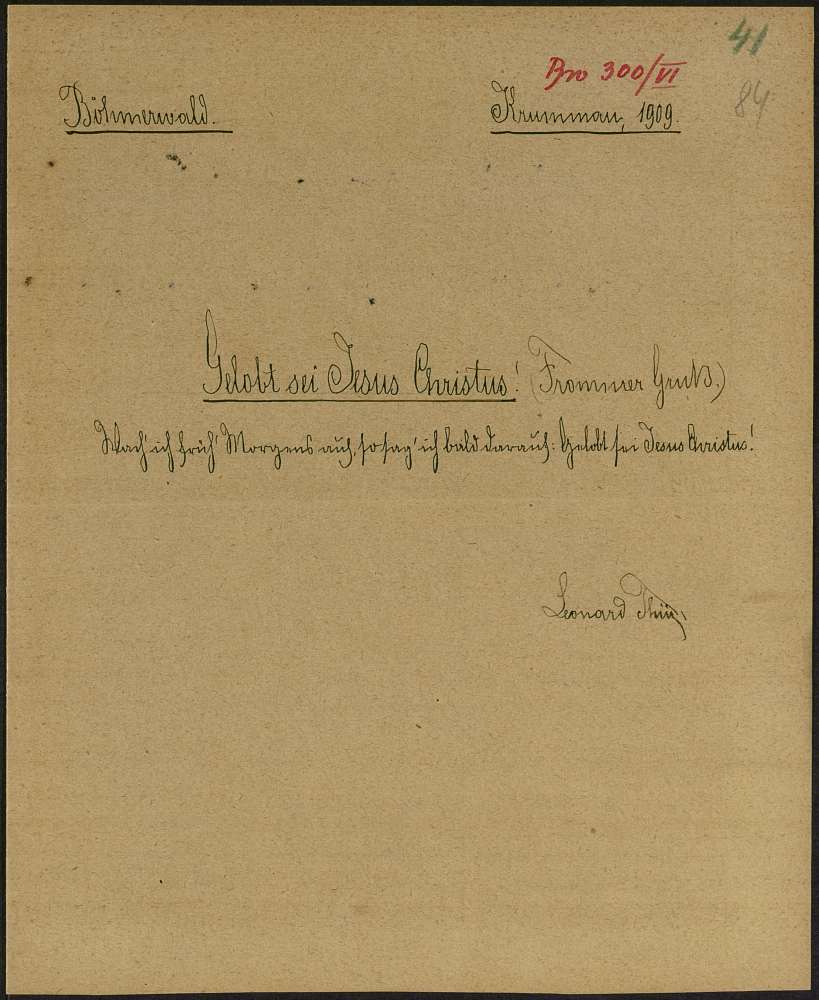 41
Bro 300/VI
84
Böhmerwald.
Krummau, 1909.
Gelobt sei Jesus Christus! (Frommer Gruß.)
Wach' ich früh' Morgens auf, so sag' ich bald darauf: Gelobt sei Jesus Christus!
Leonard